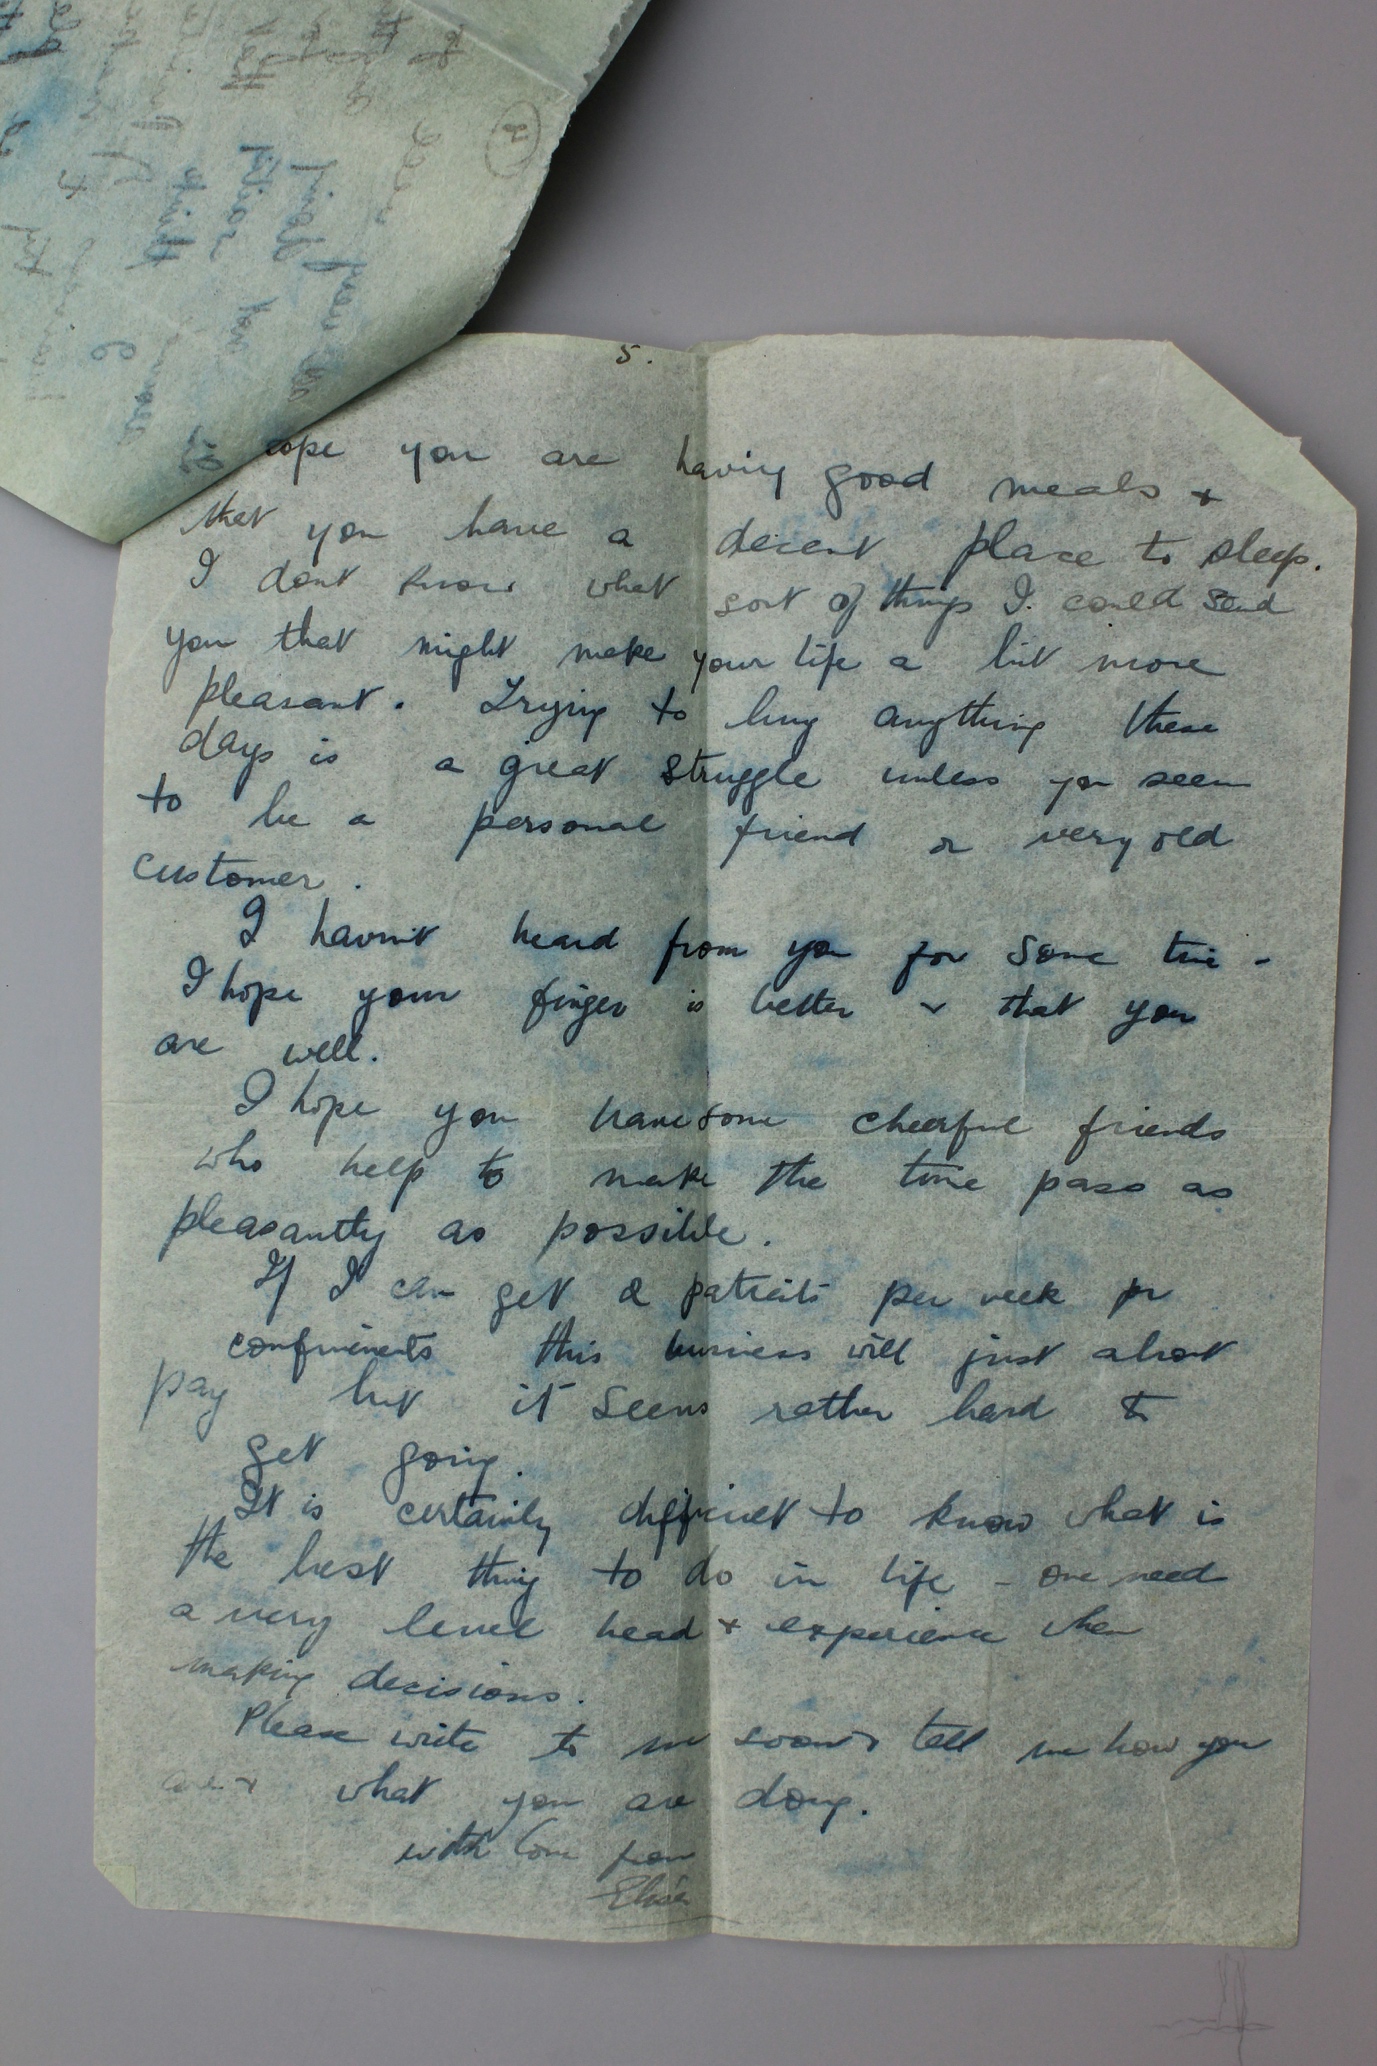 5.
hope you are having good meals +
that you have a decent place to sleep.
I dont know what sort of things I could send
you that might make your life a bit more
pleasant. Trying to buy anything these
days is a great struggle unless you seem
to be a personal friend or very old
customer.
I havn't heard from you for some time -
I hope your finger is better + that you
are well.
I hope you have some cheerful friends
who help to make the time pass as
pleasantly as possible.
If I can get 2 patients per week for
confinements this business will just about
pay but it seems rather hard to
get going.
It is certainly difficult to know what is
the best thing to do in life - one need
a very level head + experience when
making decisions.
Please write to me soon + tell me how you
are + what you are doing.
with love from